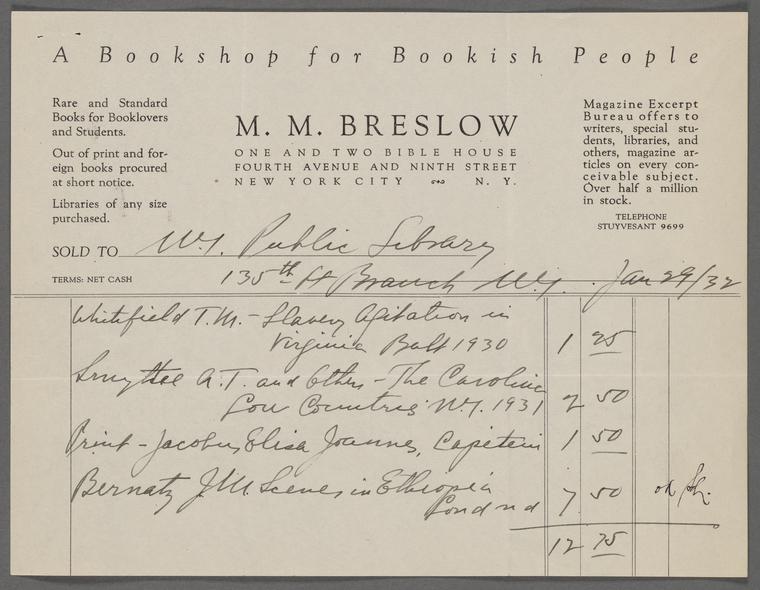 A Bookshop for Bookish People
Rare and Standard
Books for Booklovers
and Students.
Out of print and for-
eign books procured
at short notice.
Libraries of any size
purchased.
M. M. BRESLOW
ONE AND TWO BIBLE HOUSE
FOURTH AVENUE AND NINTH STREET
NEW YORK CITY N. Y.
Magazine Excerpt
Bureau offers to
writers, special stu-
dents, libraries, and
others, magazine ar-
ticles on every con-
ceivable subject.
Over half a million
in stock.
TELEPHONE
STUYVESANT 9699
SOLD TO N.Y. Public Library
TERMS: NET CASH 135th St Branch N.Y. Jan 29/32
Whitfield T.M. - Slavery Agitation in
Virginia Balt 1930 1 25
Smythe A.T. and Others - The Carolina
Low Countries N.Y. 1931 2 50
Print - Jacobus Elisa Joannes, Capetein 1 50
Bernatz J.M. Scenes in Ethiopia
Lond nd 7 50 ok
12 75